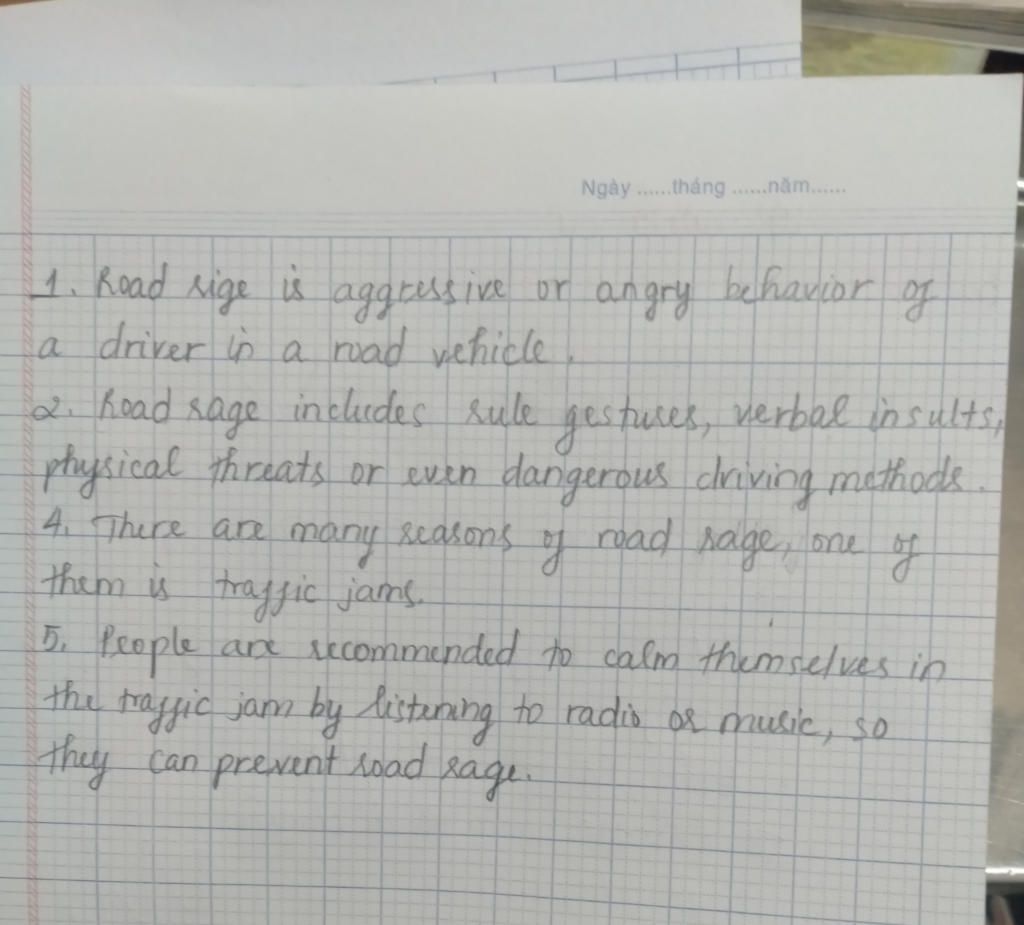 Ngày ......tháng ......năm......
1. Road rige is aggressive or angry behavior of
a driver in a road vehicle.
2. Road rage includes rule gestures, verbal insults,
physical threats or even dangerous driving methods.
4. There are many reasons of road rage, one of
them is traffic jams.
5. People are recommended to calm themselves in
the traffic jam by listening to radio or music, so
they can prevent road rage.